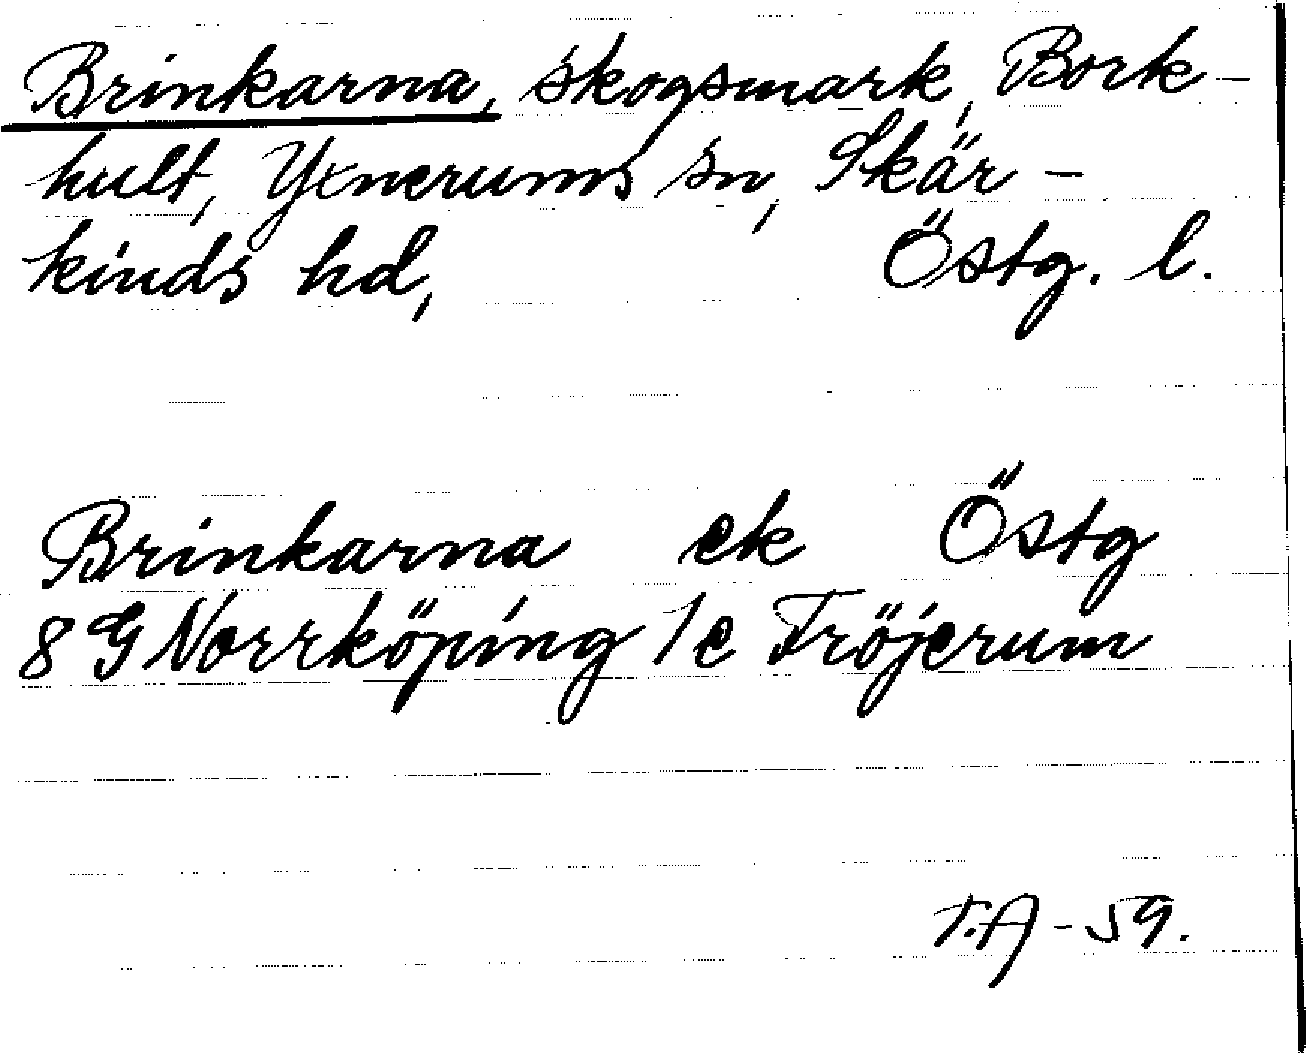 Brinkarna, skogsmark, Bork-
hult, Yxnerums sn, Skär-
kinds hd, Östg. l.
Brinkarna ek Östg
8 G Norrköping 1 e Fröjerum
T.A - 59.